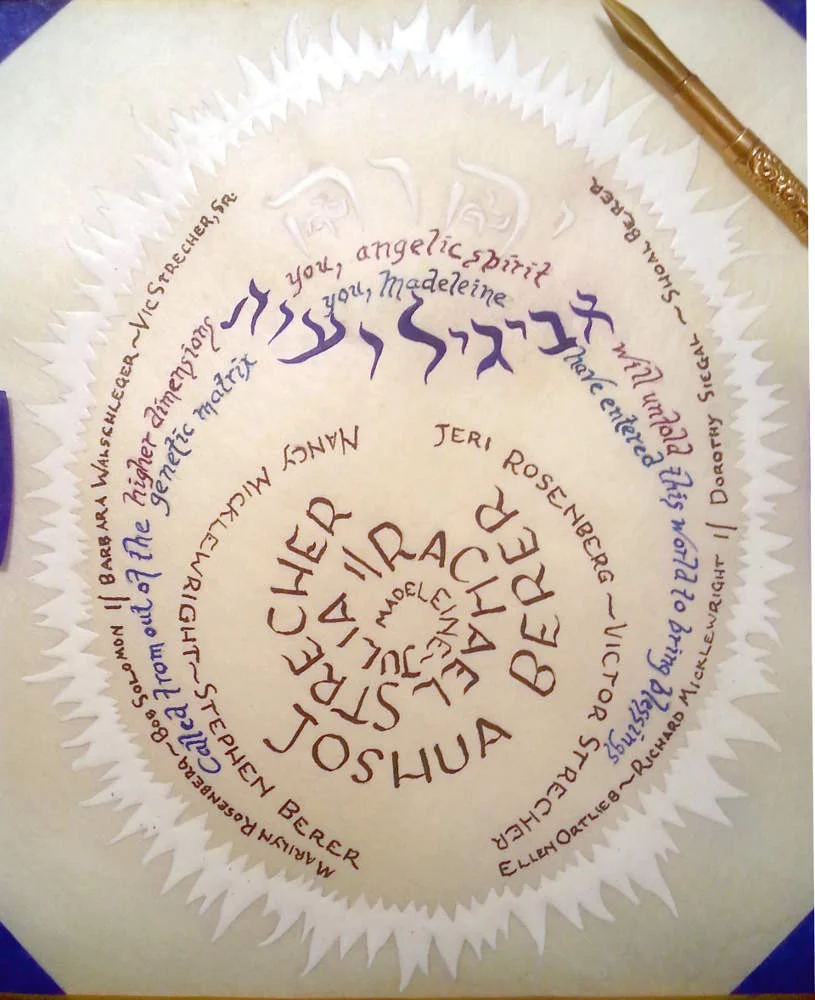 יהוה
Called from out of the higher dimensions
you, angelic spirit
will unfold this world to bring blessings
genetic matrix
you, Madeleine
have entered
אביגיל רעות
MARILYN ROSENBERG ~ BOB SOLOMON || BARBARA WALSCHLEGER ~ VIC STRECHER, SR.
ELLEN ORTLIEB ~ RICHARD MICKLEWRIGHT || DOROTHY SIEGAL ~ SHOAL BERER
NANCY MICKLEWRIGHT ~ STEPHEN BERER
JERI ROSENBERG ~ VICTOR STRECHER
MADELEINE
JULIA || RACHAEL
STRECHER
JOSHUA BERER